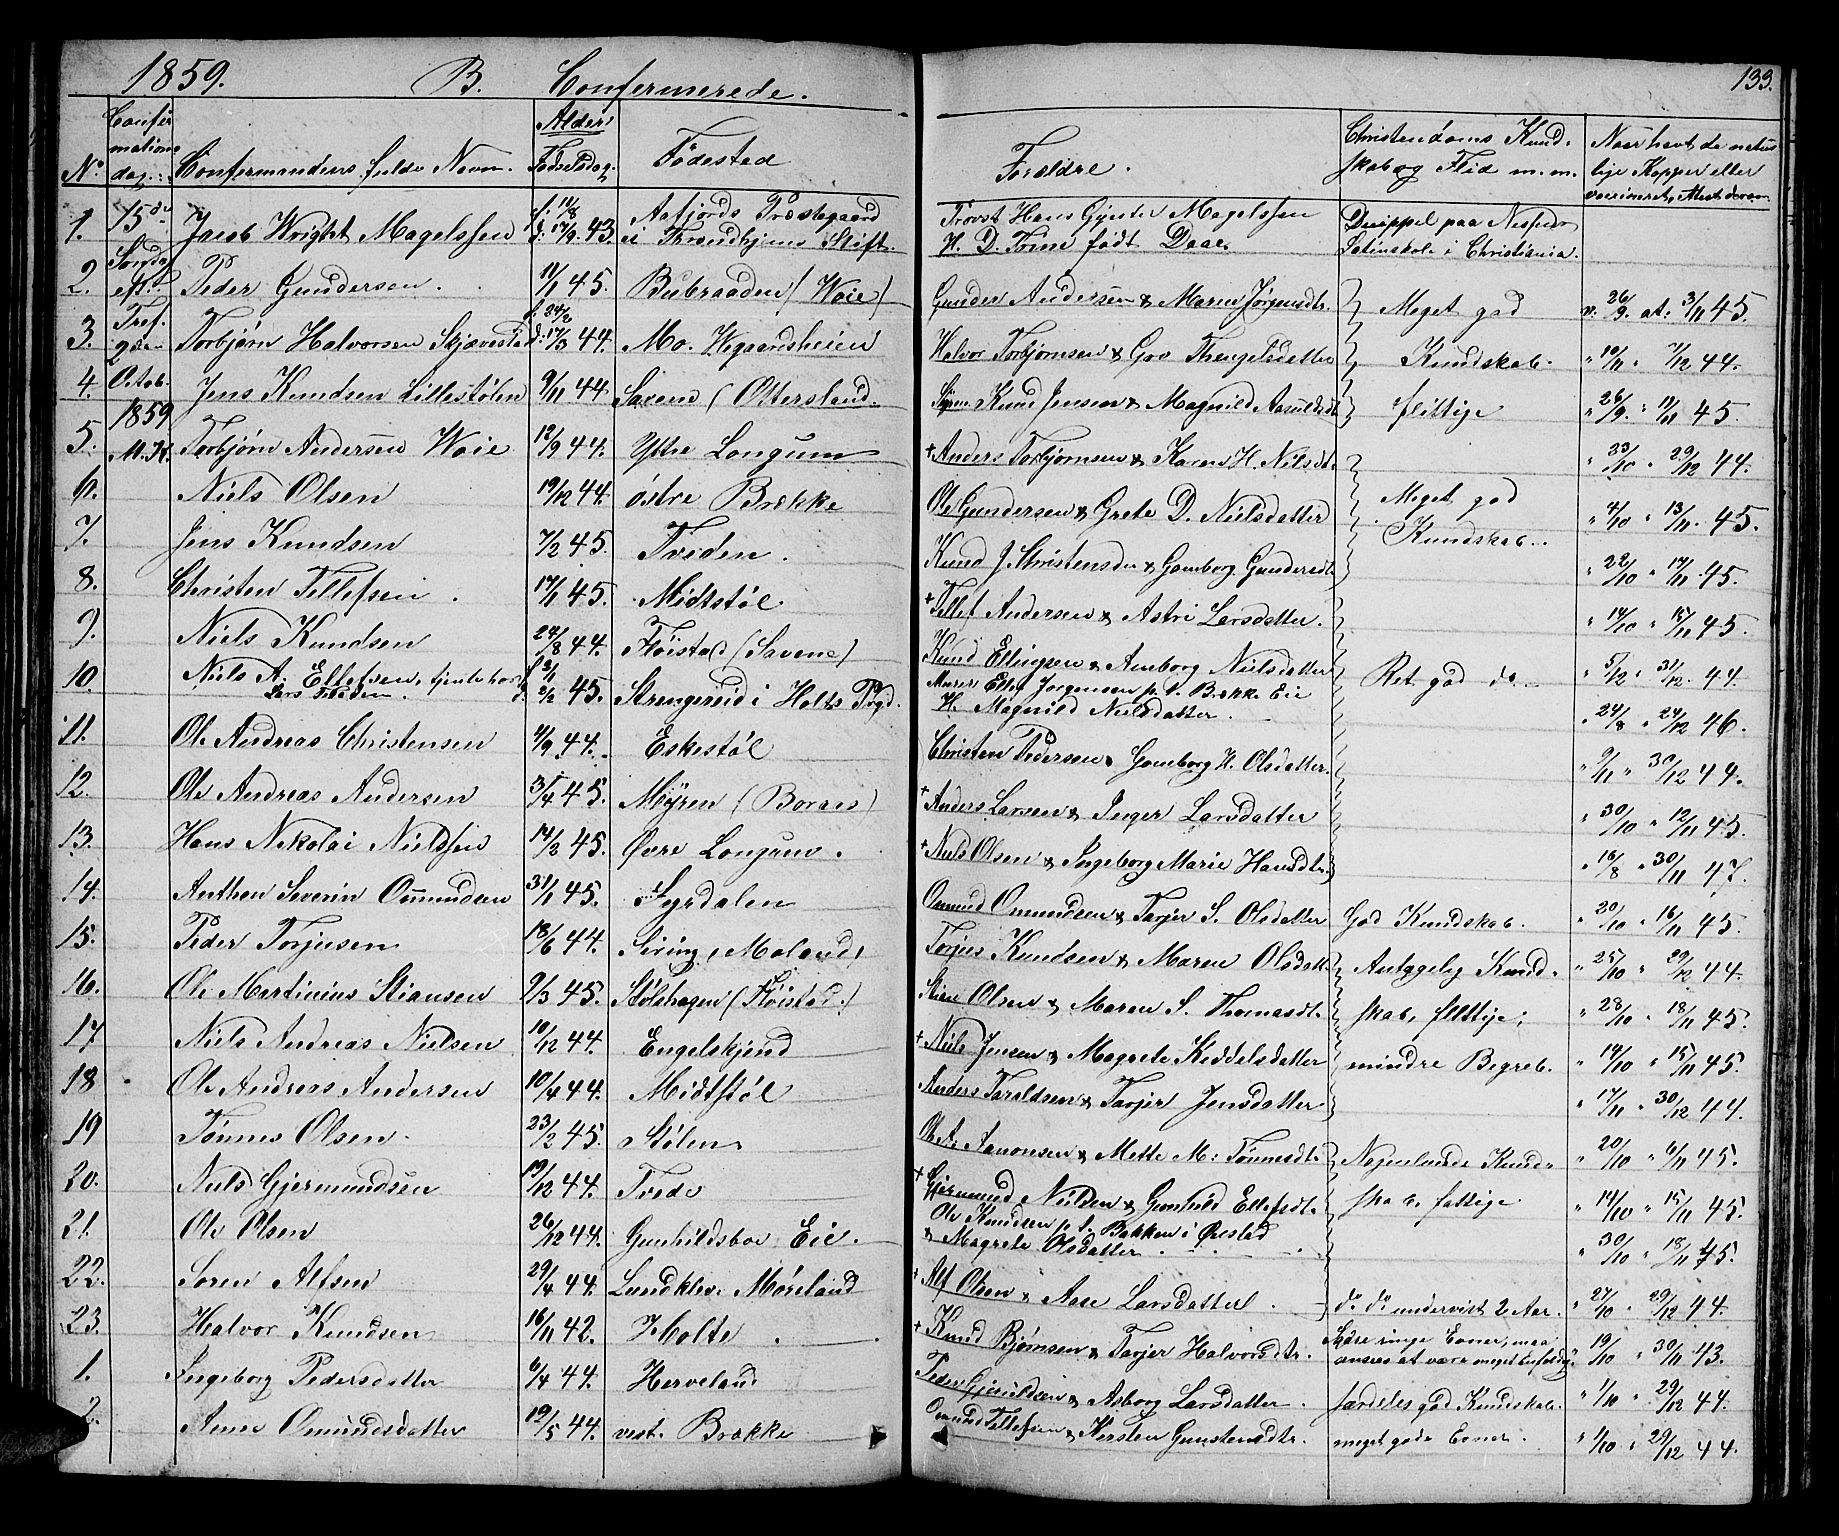 1859. B. Confermerede.
133.
No.
Confir
mations
dag.
Confermandens fulde Navn.
Alder
Fødselsdag.
Fødested
Forældre.
Christendoms Kund-
skab og Flid m. m.
Naar havt de natur
lige Kopper eller
vaccineret, Attest derom
15de
Søndag
eft.
Tref.
2den
Octob.
1859
M. K.
1. Jacob Wright Magelssen f. 11/8 d. 17/9. 43. Aafjords Præstegaard
i Trondhjems Stift.
Provst Hans Gynter Magelssen
H. D. Trine født Daae.
Discippel paa Nissens
Latinskole i Christiania.
2. Peder Gundersen. 11/1 45. Bubraaden (Woie) Gunder Andersen & Maren Jørgensdtr. Meget god v. 26/9. at. 3/11 45.
3. Torbjørn Halvorsen Skjævestad f. 24/2 d. 17/3 44. Mo. Wegaardsheien Halvor Torbjørnsen & Gov Thengelsdatter Kundskab. " 10/11 " 7/12 44.
4. Jens Knudsen Lillestølen 9/11 44. Saxene (Ottersland. Knud Jensen & Magnild Aasuldsdt. flittige " 26/9. " 11/11 45.
5. Torbjørn Andersen Woie 12/9 44. Ystre Longum + Anders Torbjørnsen & Karen H. Nilsdt. " 23/10 " 29/12 44.
6. Niels Olsen 19/12 44. østre Brække Ole Gundersen & Grete D. Nielsdatter Meget god " 4/10 " 13/11. 45.
7. Jens Knudsen 7/2 45. Tveden. Knud J. Christensen & Gomborg Gundersdt. Kundskab. " 22/10 " 17/11 45.
8. Christen Tellefsen. 17/1 45. Midtstøl + Tellef Andersen & Astri Larsdatter. " 14/10 " 15/11 45.
9. Niels Knudsen 24/8 44. Fløistad (Savene) Knud Ellingsen & Anborg Nielsdatter " 5/12 " 31/12. 44.
10. Niels A. Ellefsen, tjente hos
Lars Tveden. f. 3/1 d. 2/2 45. Strengereid i Holts Pgd.
Murer Ellef Jørgensen p. t. Brække Eie
H. Magnild Nielsdatter. Ret god do " 24/8 " 24/12 46.
11. Ole Andreas Christensen 4/9 44. Eskestøl Christen Pedersen & Gomborg H. Olsdatter. " 9/11 " 30/12 44.
12. Ole Andreas Andersen 3/4 45. Myren (Boraas) + Anders Larsen & Inger Larsdatter " 30/10 " 12/11 45.
13. Hans Nikolai Nielssen 14/2 45. Øvre Longum. + Niels Olsen & Ingeborg Marie Hansdtr. " 16/8 " 30/11 47.
14. Anthon Severin Ommundsen 31/1 45. Syrdalen Omund Omundsen & Tarjer S. Olsdatter God Kundskab. " 20/10 " 16/11 45.
15. Peder Torjusen 18/6 44. Siring, Moland, Torjus Knudsen & Maren Olsdatt. Antagelig Kund- " 25/10 " 29/12 44.
16. Ole Martinius Stiansen 9/3 45. Stølehagen (Fløistad.) Stian Olsen & Maren S. Thomasdt. skab, flittige; " 28/10 " 18/11 45.
17 Niels Andreas Nielsen 10/12 44. Engelskjend + Niels Jensen & Magrete Keddelsdatter mindre Begreb. " 14/10 " 15/11 45.
18 Ole Andreas Andersen 10/4 44. Midtstøl Anders Taraldsen & Tarjer Jensdatter " 17/11 " 30/12 44.
19 Tønnes Olsen. 23/2 45. Stølen. Ole A. Aanonsen & Mette M. Tønnesdt. Nogenlunde Kund- " 20/10 " 6/11 45.
20. Niels Gjermundsen 19/12 44. Tvede + Gjermund Nielsen & Gunhild Ellefsdt. skab. fattige " 14/10 " 15/11 45.
21. Ole Olsen 26/12 44. Gunhildsboe Eie. Ole Knudsen p. t. Bakken i Øiestad
& Magrete Olsdatter. " 30/10 " 18/11 45.
22. Søren Alfsen 29/4 44. Lundklev. Møreland + Alf Olsen & Aase Larsdatter. do do undervist 2 Aar. " 27/10 " 29/12 44.
23. Halvor Knudsen 16/11 42. Holte. + Knud Bjørnsen & Tarjer Halvorsdtr. Sære ringe Evner, maa
ansees at være meget " 19/10 " 30/11 43.
1. Ingeborg Pedersdatter 6/4 44. Herveland Peder & Asborg Larsdatter. særdeles god Kundskab. " 1/10 " 29/12 44.
2. Anne Omundsdatter 12/5 44. vest. Brække Omund Tellefsen & Kersten Gunstensdtr. meget gode Evner. " 1/10 " 29/12 44.